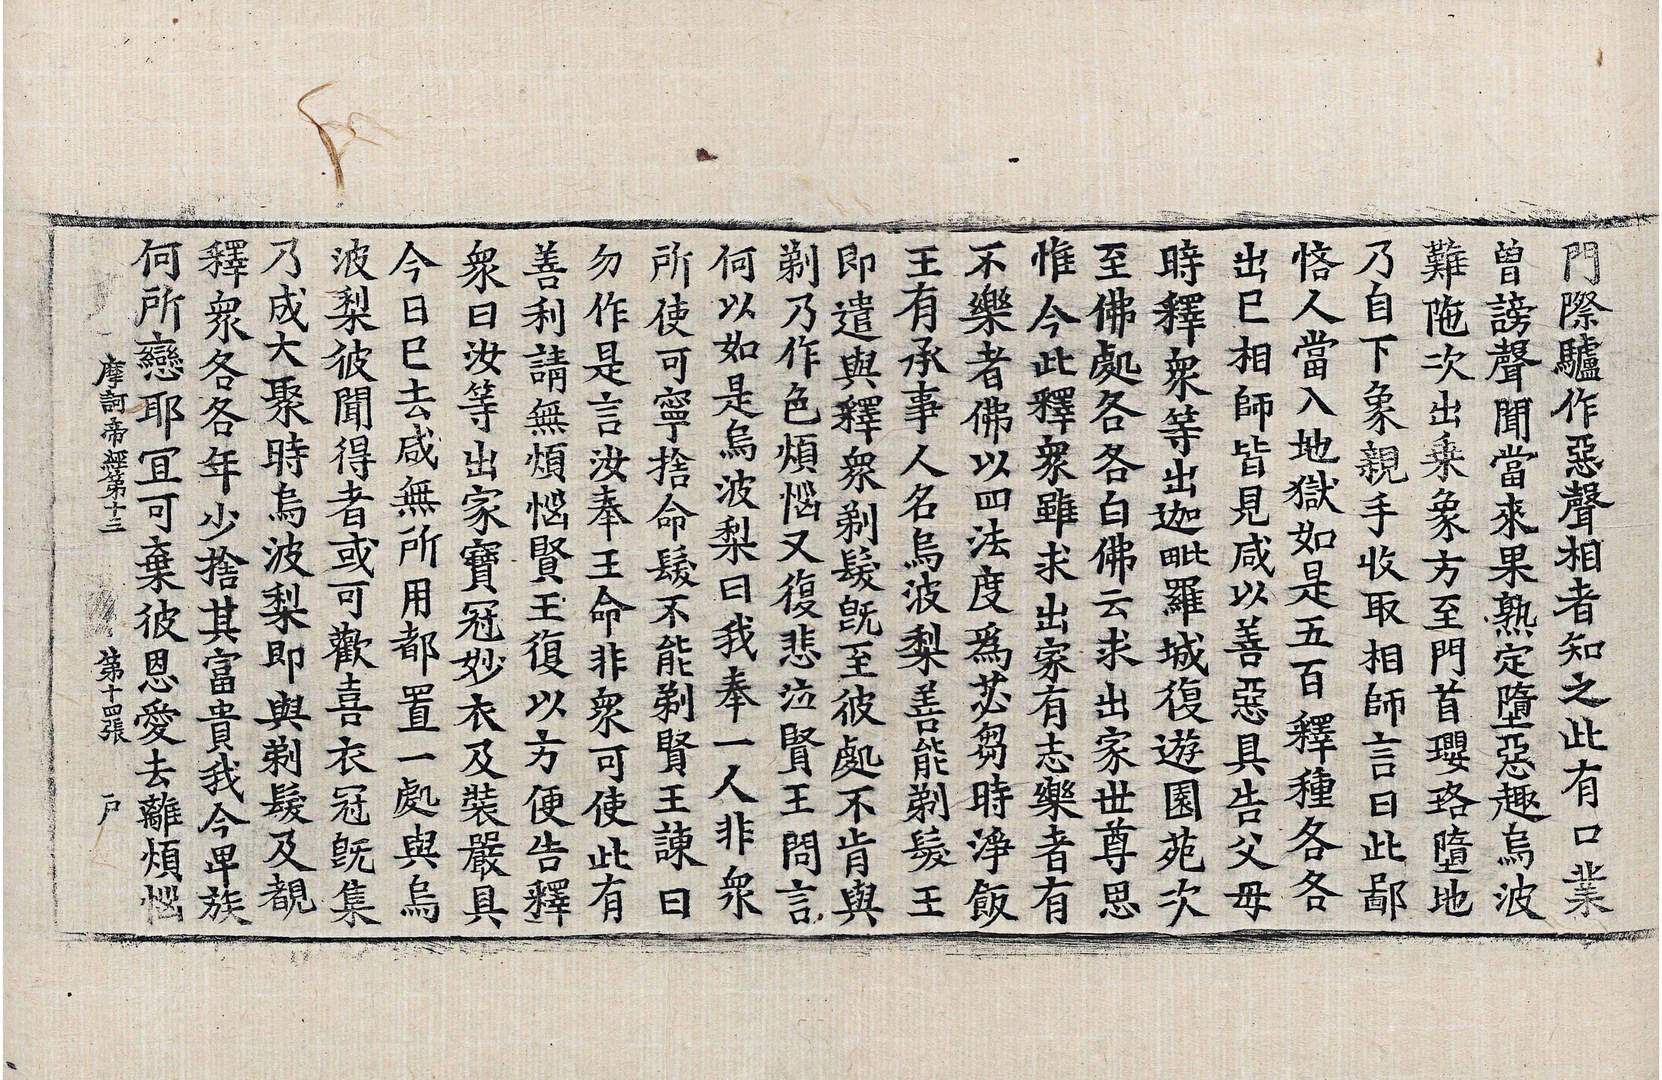 門際驢作惡聲相者知之此有口業
曾謗聲聞當來果熟定墮惡趣烏波
難陁次出乗象方至門首瓔珞墮地
乃自下象親手收取相師言曰此鄙
悋人當入地獄如是五百釋種各各
出已相師皆見咸以善惡具告父母
時釋衆等出迦毗羅城復遊園苑次
至佛處各各白佛云求出家世尊思
惟今此釋衆雖求出家有志樂者有
不樂者佛以四法度爲苾芻時淨飯
王有承事人名烏波梨善能剃髮王
即遣與釋衆剃髮旣至彼處不肯與
剃乃作色煩惱又復悲泣賢王問言
何以如是烏波梨曰我奉一人非衆
所使可寧捨命髮不能剃賢王諫曰
勿作是言汝奉王命非衆可使此有
善利請無煩惱賢王復以方便告釋
衆曰汝等出家寶冠妙衣及裝嚴具
今日已去咸無所用都置一處與烏
波梨彼聞得者或可歡喜衣冠旣集
乃成大聚時烏波梨即與剃髮及覩
釋衆各各年少捨其富貴我今卑族
何所戀耶冝可棄彼恩愛去離煩惱
摩訶帝經第十三 第十四張 户